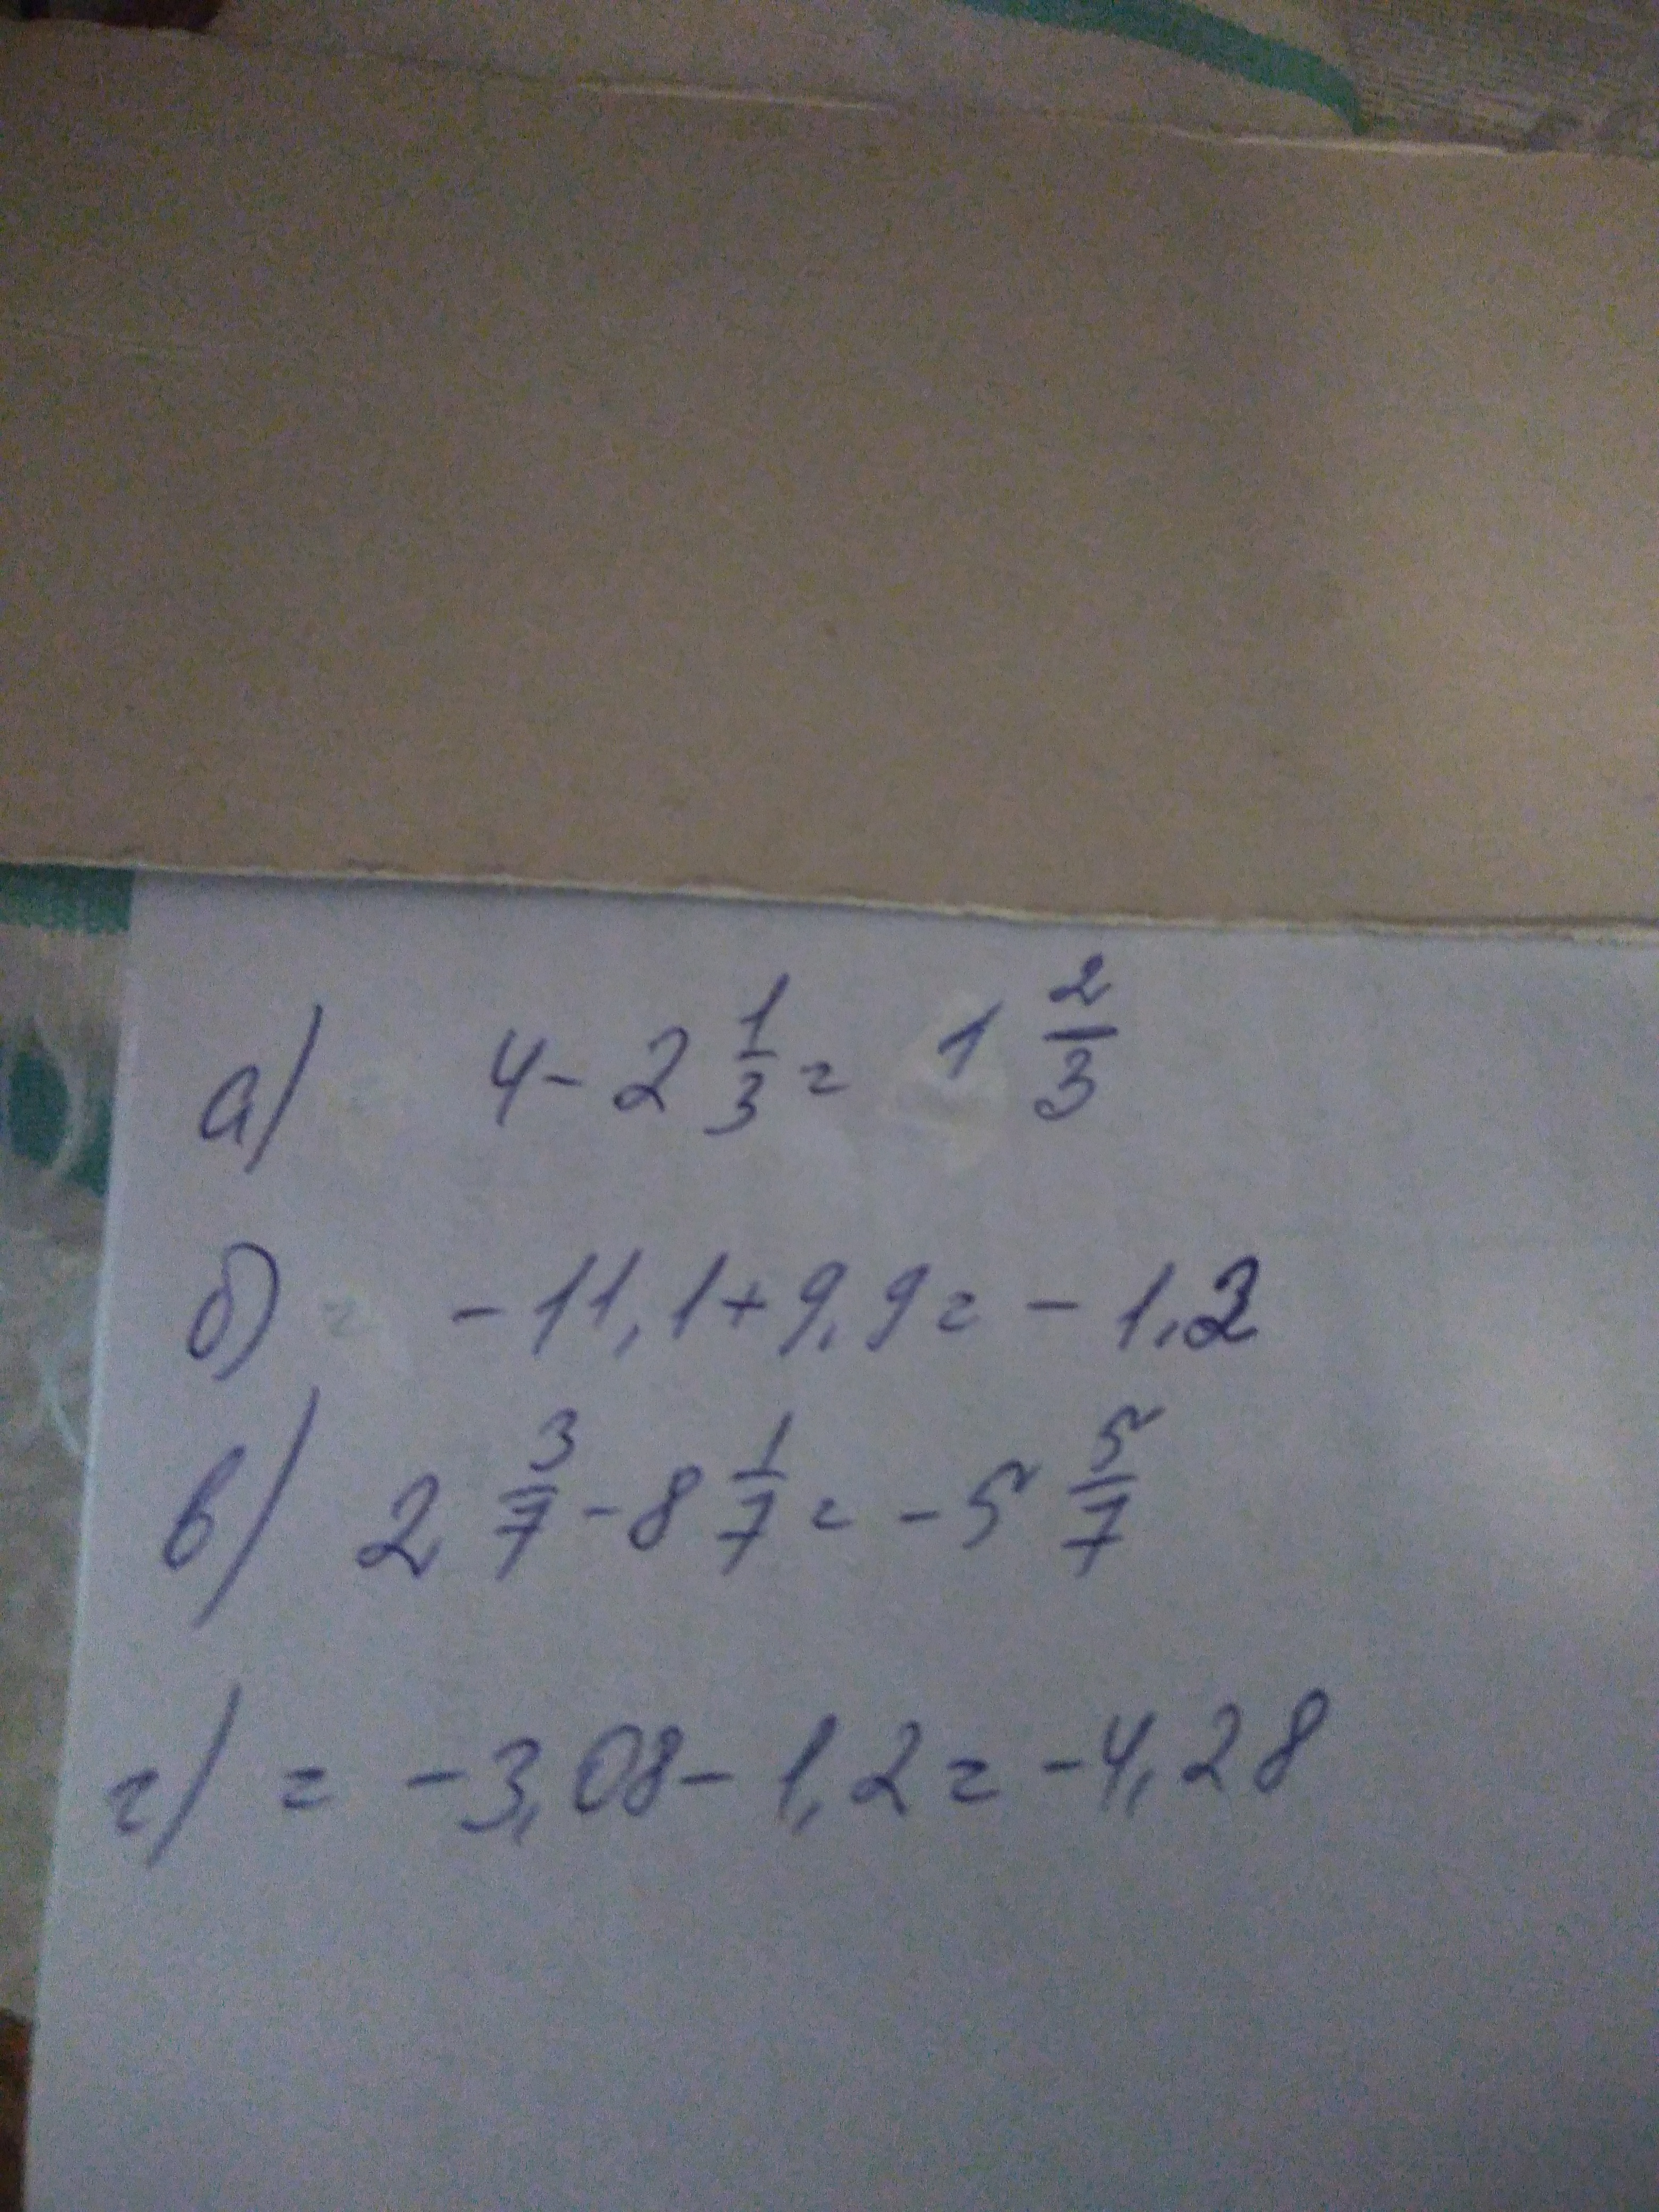 а) 4 - 2 1/3 = 1 2/3
б) -11,1 + 9,9 = -1,2
в) 2 3/7 - 8 1/7 = -5 5/7
г) = -3,08 - 1,2 = -4,28